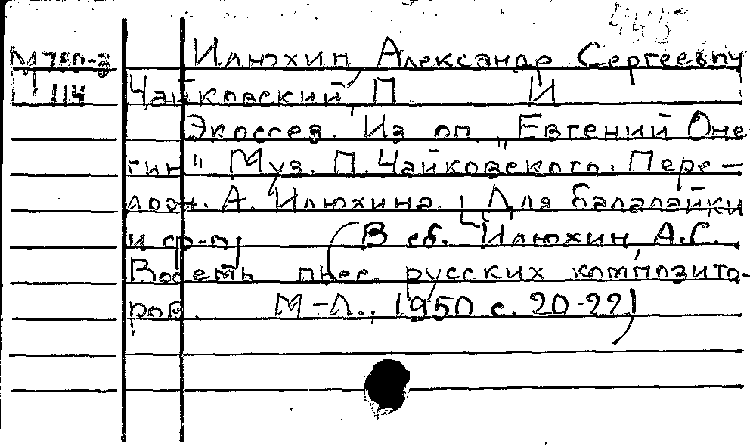 445
М 750-3 Илюхин Александр Сергеевич
114 Чайковский, П И
Экоссез. Из оп. "Евгений Оне
гин" Муз. П. Чайковского. Пере-
лож. А. Илюхина. [Для балалайки
и ф-п] (В сб. Илюхин, А.С.
Восемь пьес русских компoзито-
ров. М-Л., 1950 с. 20-22)